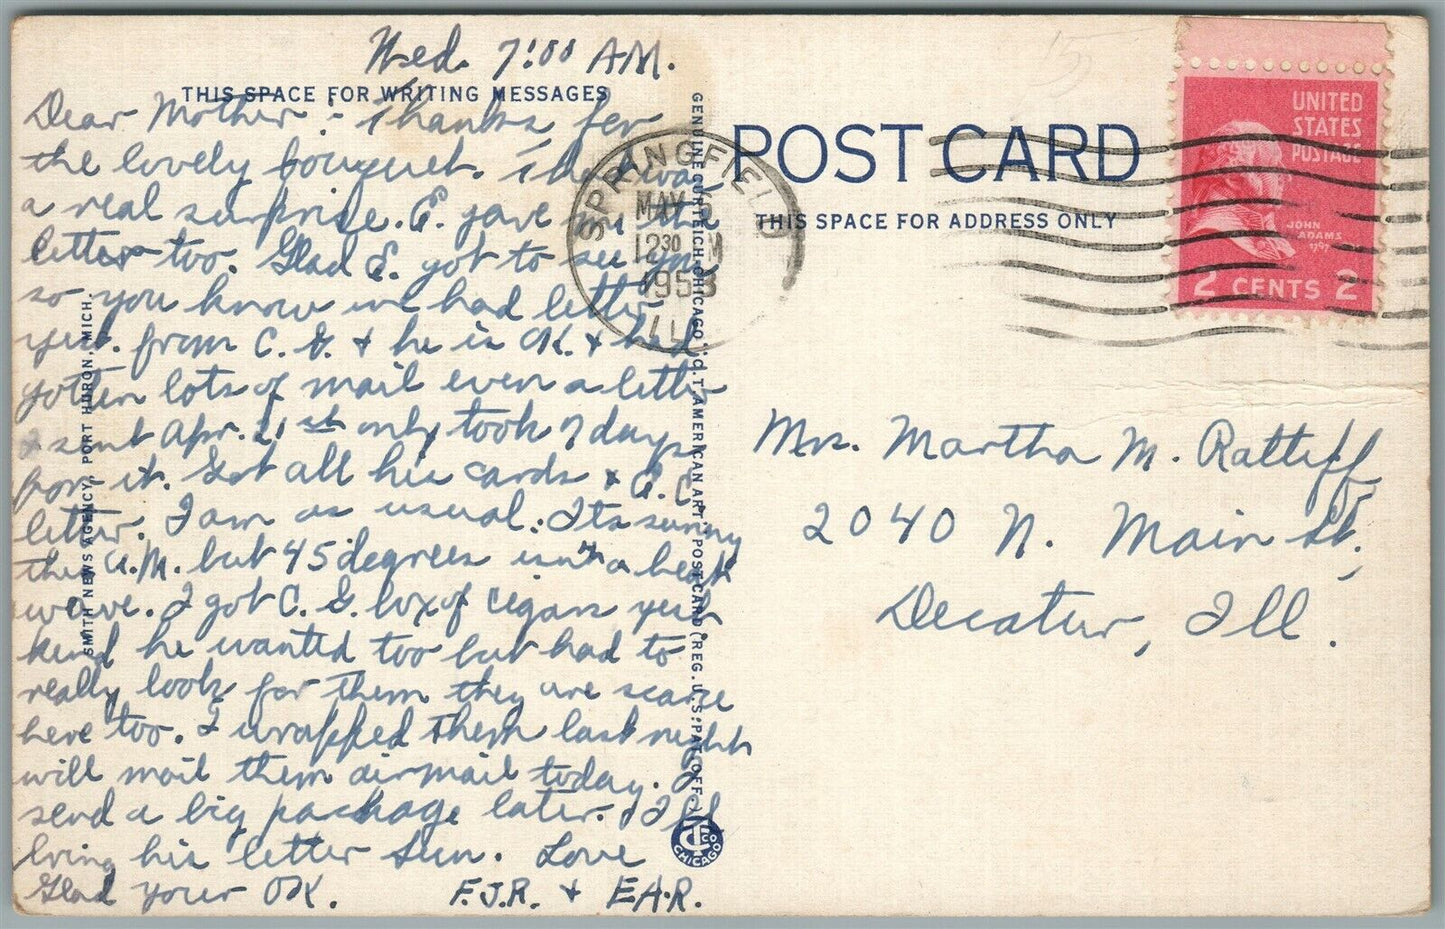 Wed. 7:00 A.M.
THIS SPACE FOR WRITING MESSAGES
Dear Mother:- Thanks for
the lovely bouquet. That was
a real surprise. E. gave me the
letter too. Glad E. got to see you
so you know we had letter
yest. from C. G. & he is OK. & had
gotten lots of mail even a letter
I sent Apr. 21st only took 7 days
for it. Got all his cards &
letter. I am as usual. Its sunny
this A.M. but 45 degrees isn't a heat
wave. I got C. G. box of cigars yest.
kind he wanted too but had to
really look for them they are scarce
here too. I wrapped them last night
will mail them airmail today.
send a big package later. I'll
bring his letter Sun. Love
Glad your OK. F.J.R. & E.A.R.
SMITH NEWS AGENCY, PORT HURON, MICH.
GENUINE CURTEICH-CHICAGO "C.T. AMERICAN ART" POST CARD (REG. U.S. PAT. OFF.)
CT CO
CHICAGO
SPRINGFIELD
MAY
12 30 M
1953
ILL
POST CARD
THIS SPACE FOR ADDRESS ONLY
UNITED
STATES
POSTAGE
JOHN
ADAMS
1797
2 CENTS 2
Mrs. Martha M. Ratliff
2040 N. Main St.
Decatur, Ill.